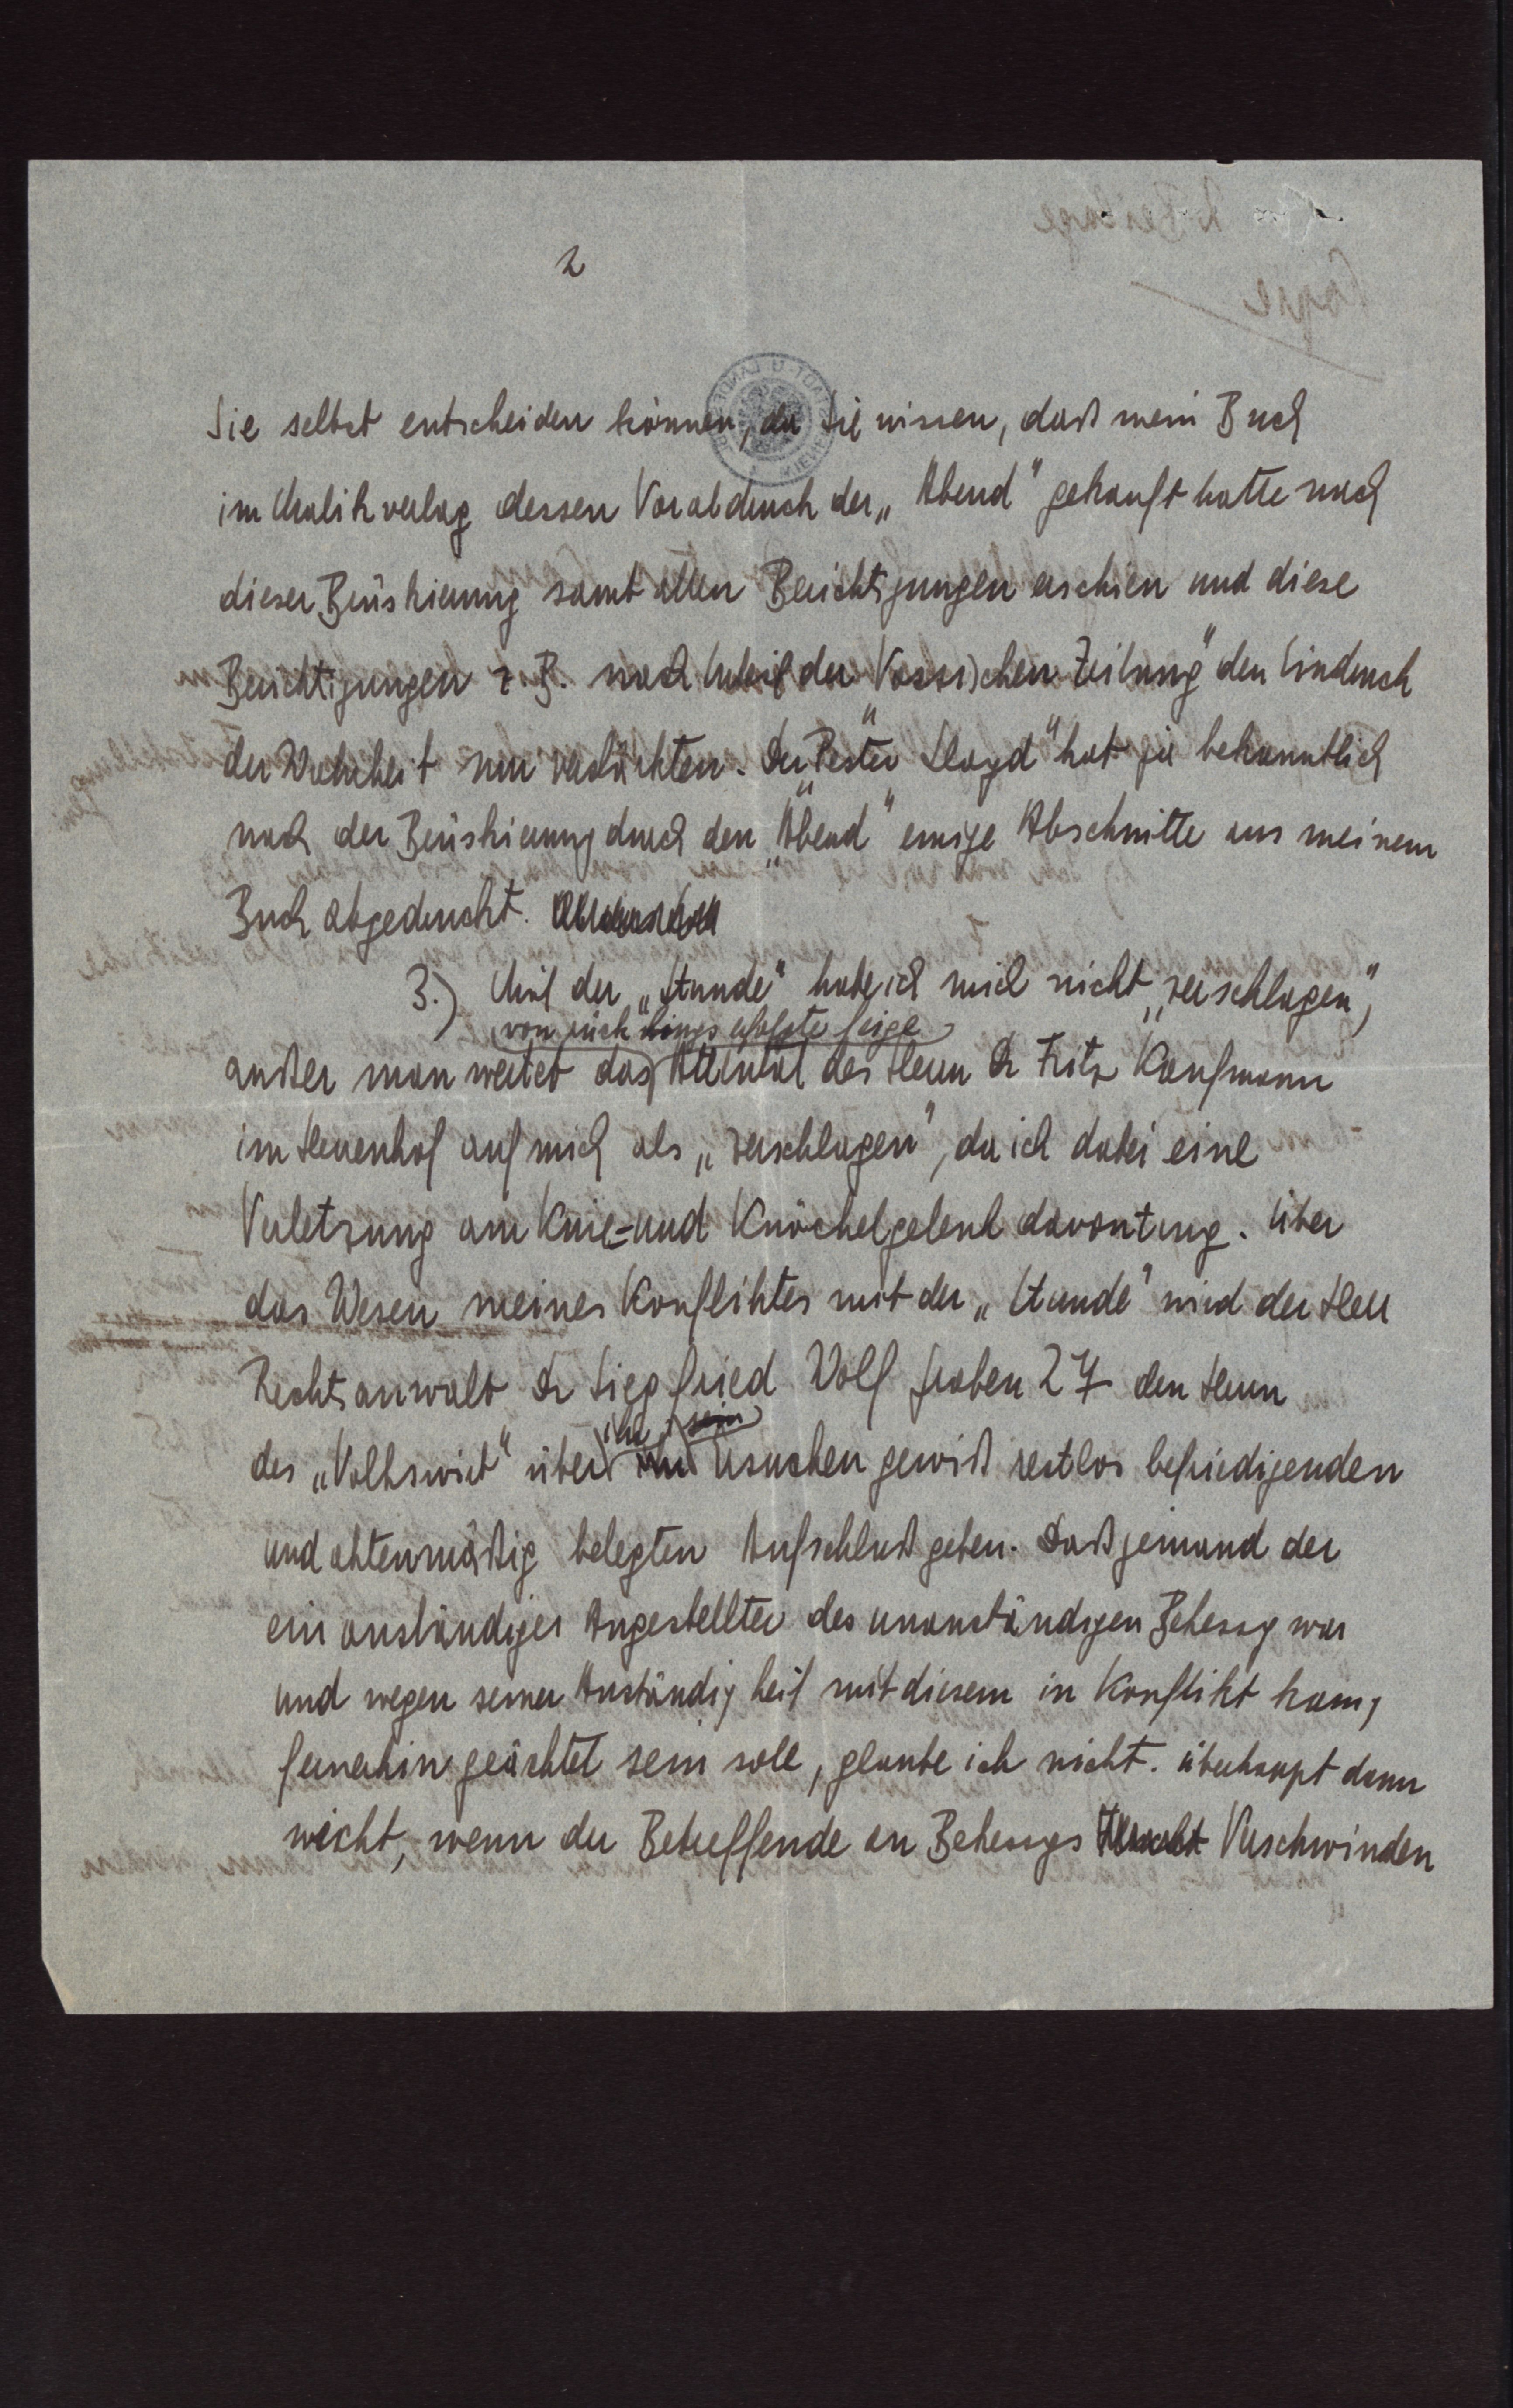 2
Sie selbst entscheiden können, da Sie wissen, daß mein Buch
im Malikverlag dessen Vorabdruck der „Abend" gekauft hatte nach
dieser Brüskierung samt allen Berichtigungen erschien und diese
Berichtigungen z. B. nach Urteil der „Vossischen Zeitung" den Eindruck
der Wahrheit nur verstärkten. Der „Pester Lloyd" hat ja bekanntlich
nach der Brüskierung durch den „Abend" einige Abschnitte aus meinem
Buch abgedruckt.
3.) Mit der „Stunde" habe ich mich nicht „zerschlagen",
von rücklings erfolgte feige
außer man wertet das Attentat des Herrn Dr Fritz Kaufmann
im Herrenhof auf mich als „zerschlagen", da ich dabei eine
Verletzung am Knie- und Knöchelgelenk davontrug. Über
das Wesen meines Konfliktes mit der „Stunde" wird der Herr
Rechtsanwalt Dr Siegfried Wolf Graben 27 den Herrn
des „Volkswirt" über
ihr sein
Ersuchen gewiß restlos befriedigenden
und aktenmäßig belegten Aufschluß geben. Daß jemand der
ein anständiger Angestellter des unanständigen Bekessy war
und wegen seiner Anständigkeit mit diesem in Konflikt kam,
fernerhin geächtet sein soll, glaube ich nicht. Überhaupt dann
nicht, wenn der Betreffende an Bekessys Verschwinden